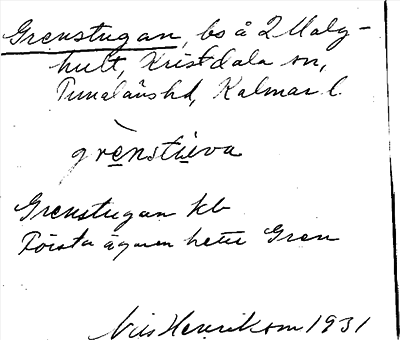 Grenstugan, bs å 2 Malg-
hult, Kristdala sn,
Tunaläns hd, Kalmar l.
grènstuva
Grenstugan kb
Första ägaren hette Gren
Nils Henrikson 1931